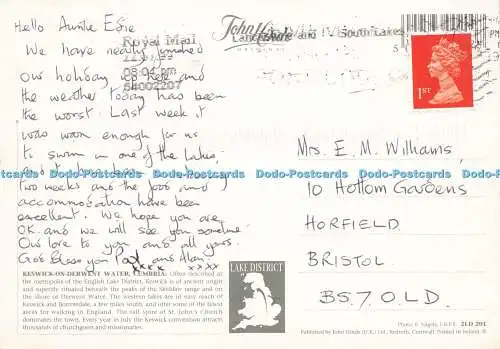 Hello Auntie Edie
We have nearly finished
our holiday here and
the weather today has been
the worst. Last week it
was warm enough for us
to swim in one of the lakes,
two weeks and the food and
accommodation have been
excellent. We hope you are
O.K. and we will see you sometime.
Our love to you and all yours.
God Bless you Pat and Alan
xxxx xxxx
Royal Mail
08:04 pm
54002207
John Hinde
ORIGINAL
South Lakes
5
1ST
Mrs. E. M. Williams,
10 Hottom Gardens
HORFIELD
BRISTOL
BS7 0LD.
Dodo-Postcards Dodo-Postcards Dodo-Postcards Dodo-Postcards Dodo-Postcards
KESWICK-ON-DERWENT WATER, CUMBRIA: Often described as
the metropolis of the English Lake District, Keswick is of ancient origin
and superbly situated beneath the peaks of the Skiddaw range and
on the shore of Derwent Water. The western fakes are in easy reach of
Keswick and Borrowdale, a few miles south, and offer some of the finest
areas for walking in England. The tall spire at St. John's Church
dominates the town. Every year in July the Keswick convention attracts
thousands of churchgoers and missionaries.
LAKE DISTRICT
Photo: E. Nägele, F.R.P.S. 2LD 201
Published by John Hinde (U.K.) Ltd., Redruth, Cornwall. Printed in Ireland. ®